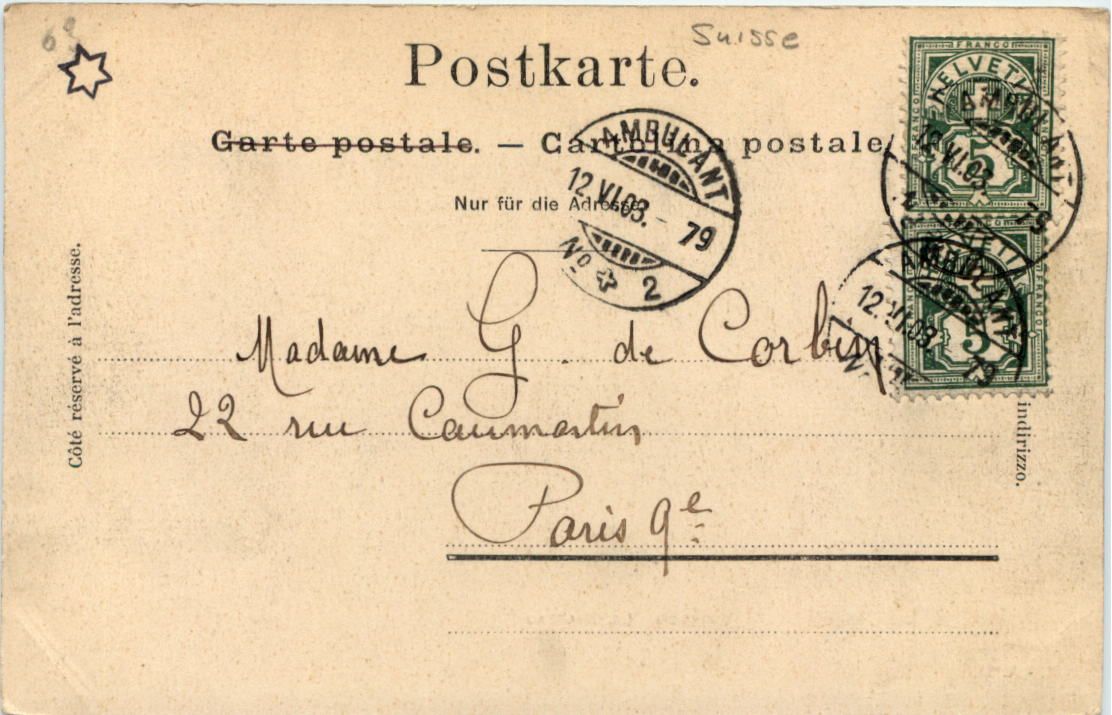 Suisse
Postkarte.
Carte postale. — Cartolina postale
Nur für die Adresse
AMBULANT
12.VI.03.- 79
No 2
FRANCO
HELVETIA
FRANCO
5
AMBULANT
12.VI.03. 79
HELVETIA
FRANCO
5
AMBULANT
12.VI.03. 79
Côté réservé à l'adresse.
indirizzo.
Madame G. de Corbin
22 rue Caumartin
Paris 9e